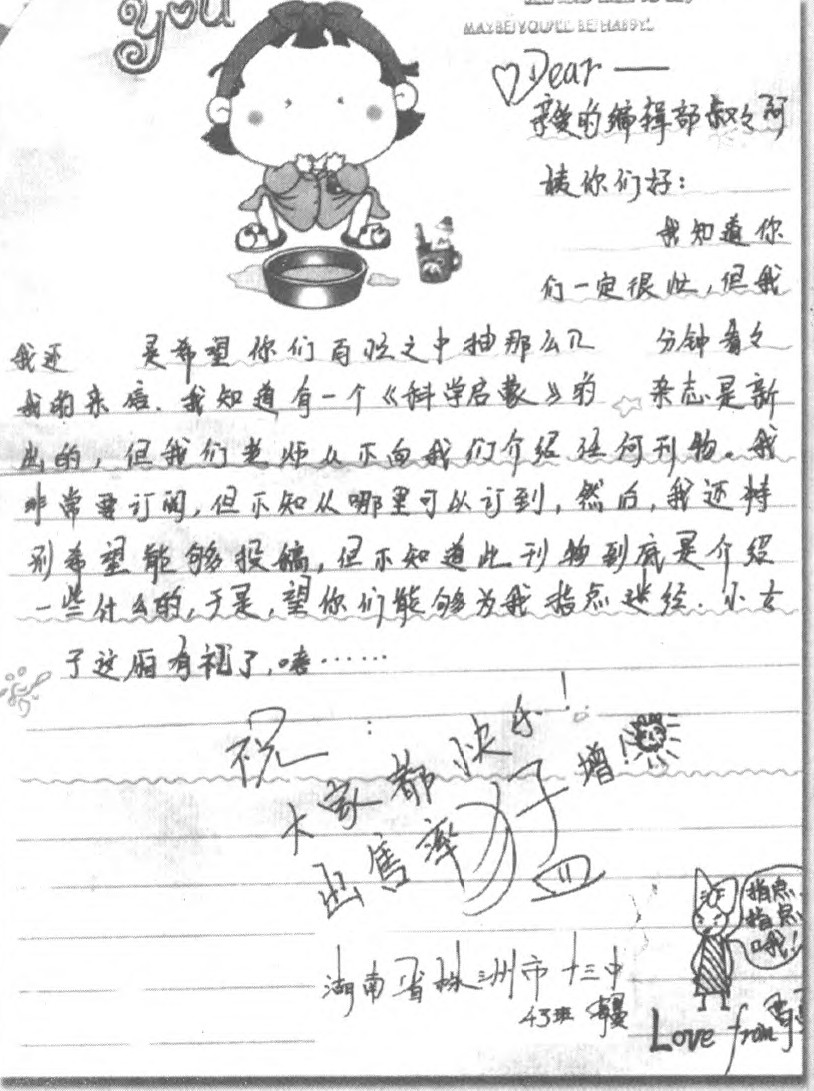 you
MAYBE YOU'LL BE HAPPY!
Dear —
亲爱的编辑部叔々阿
姨你们好:
我知道你
们一定很忙,但我
我还 是希望你们百忙之中抽那么几 分钟看々
我的来信.我知道有一个《科学启蒙》的 杂志是新
出的,但我们老师从不向我们介绍任何刊物。我
非常要订阅,但不知从哪里可以订到,然后,我还特
别希望能够投稿,但不知道此刊物到底是介绍
一些什么的,于是,望你们能够为我指点迷径.小女
子这厢有礼了,嘻……
祝:
大家都快乐!
出售率猛增!
湖南省株洲市十三中
43班
指点
指点
哦!
Love from